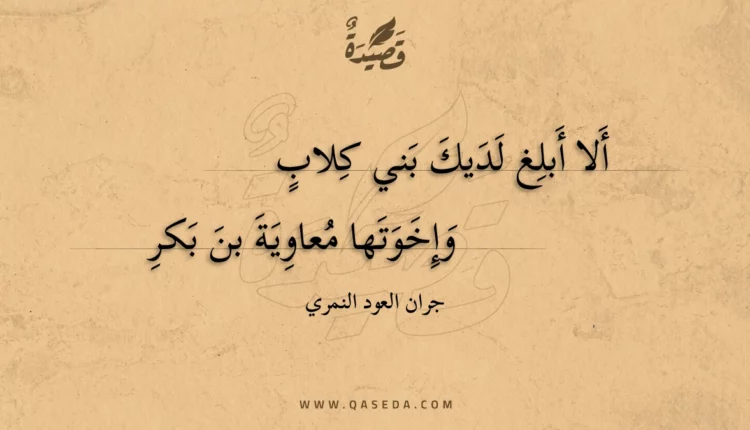 قَصِيْدَةٌ
أَلا أَبلِغ لَدَيكَ بَني كِلابٍ
وَإِخَوَتَها مُعاوِيَةَ بنَ بَكرِ
جران العود النمري
WWW.QASEDA.COM